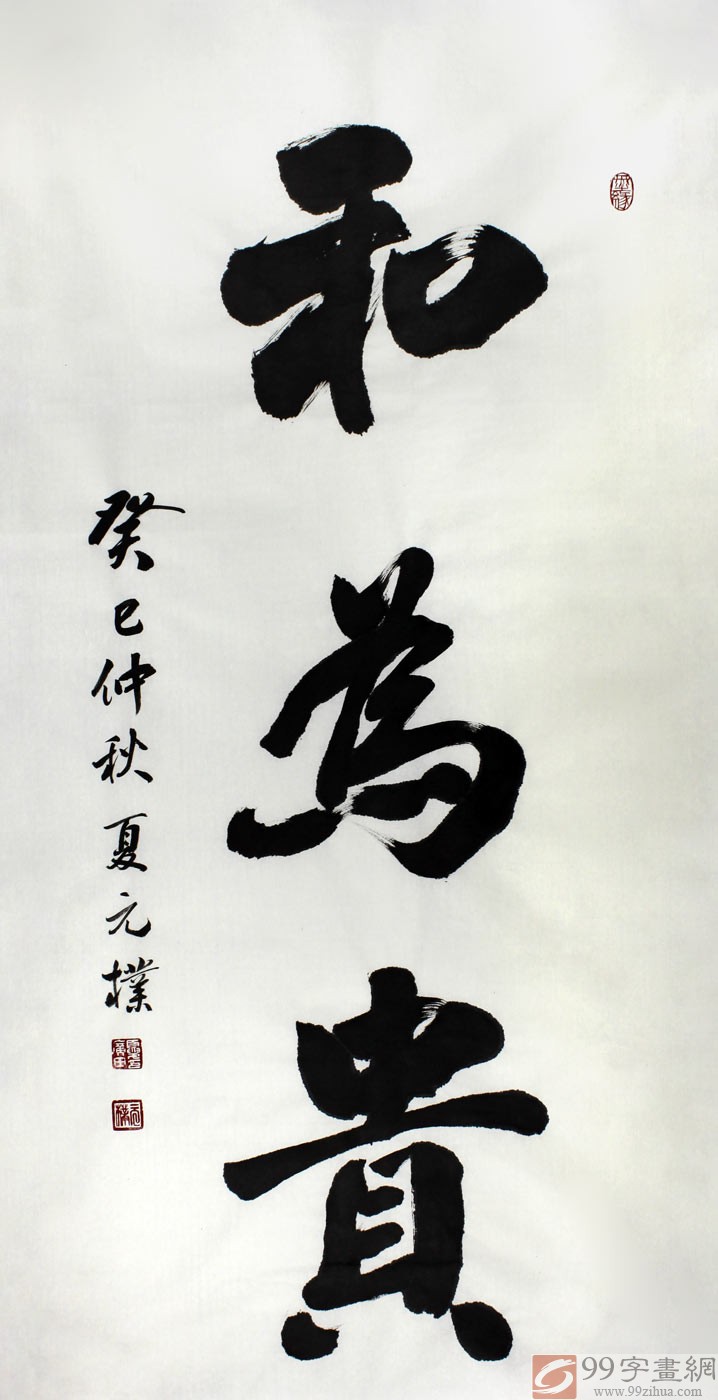 和為貴
癸巳仲秋夏元樸
99字畫網
www.99zihua.com